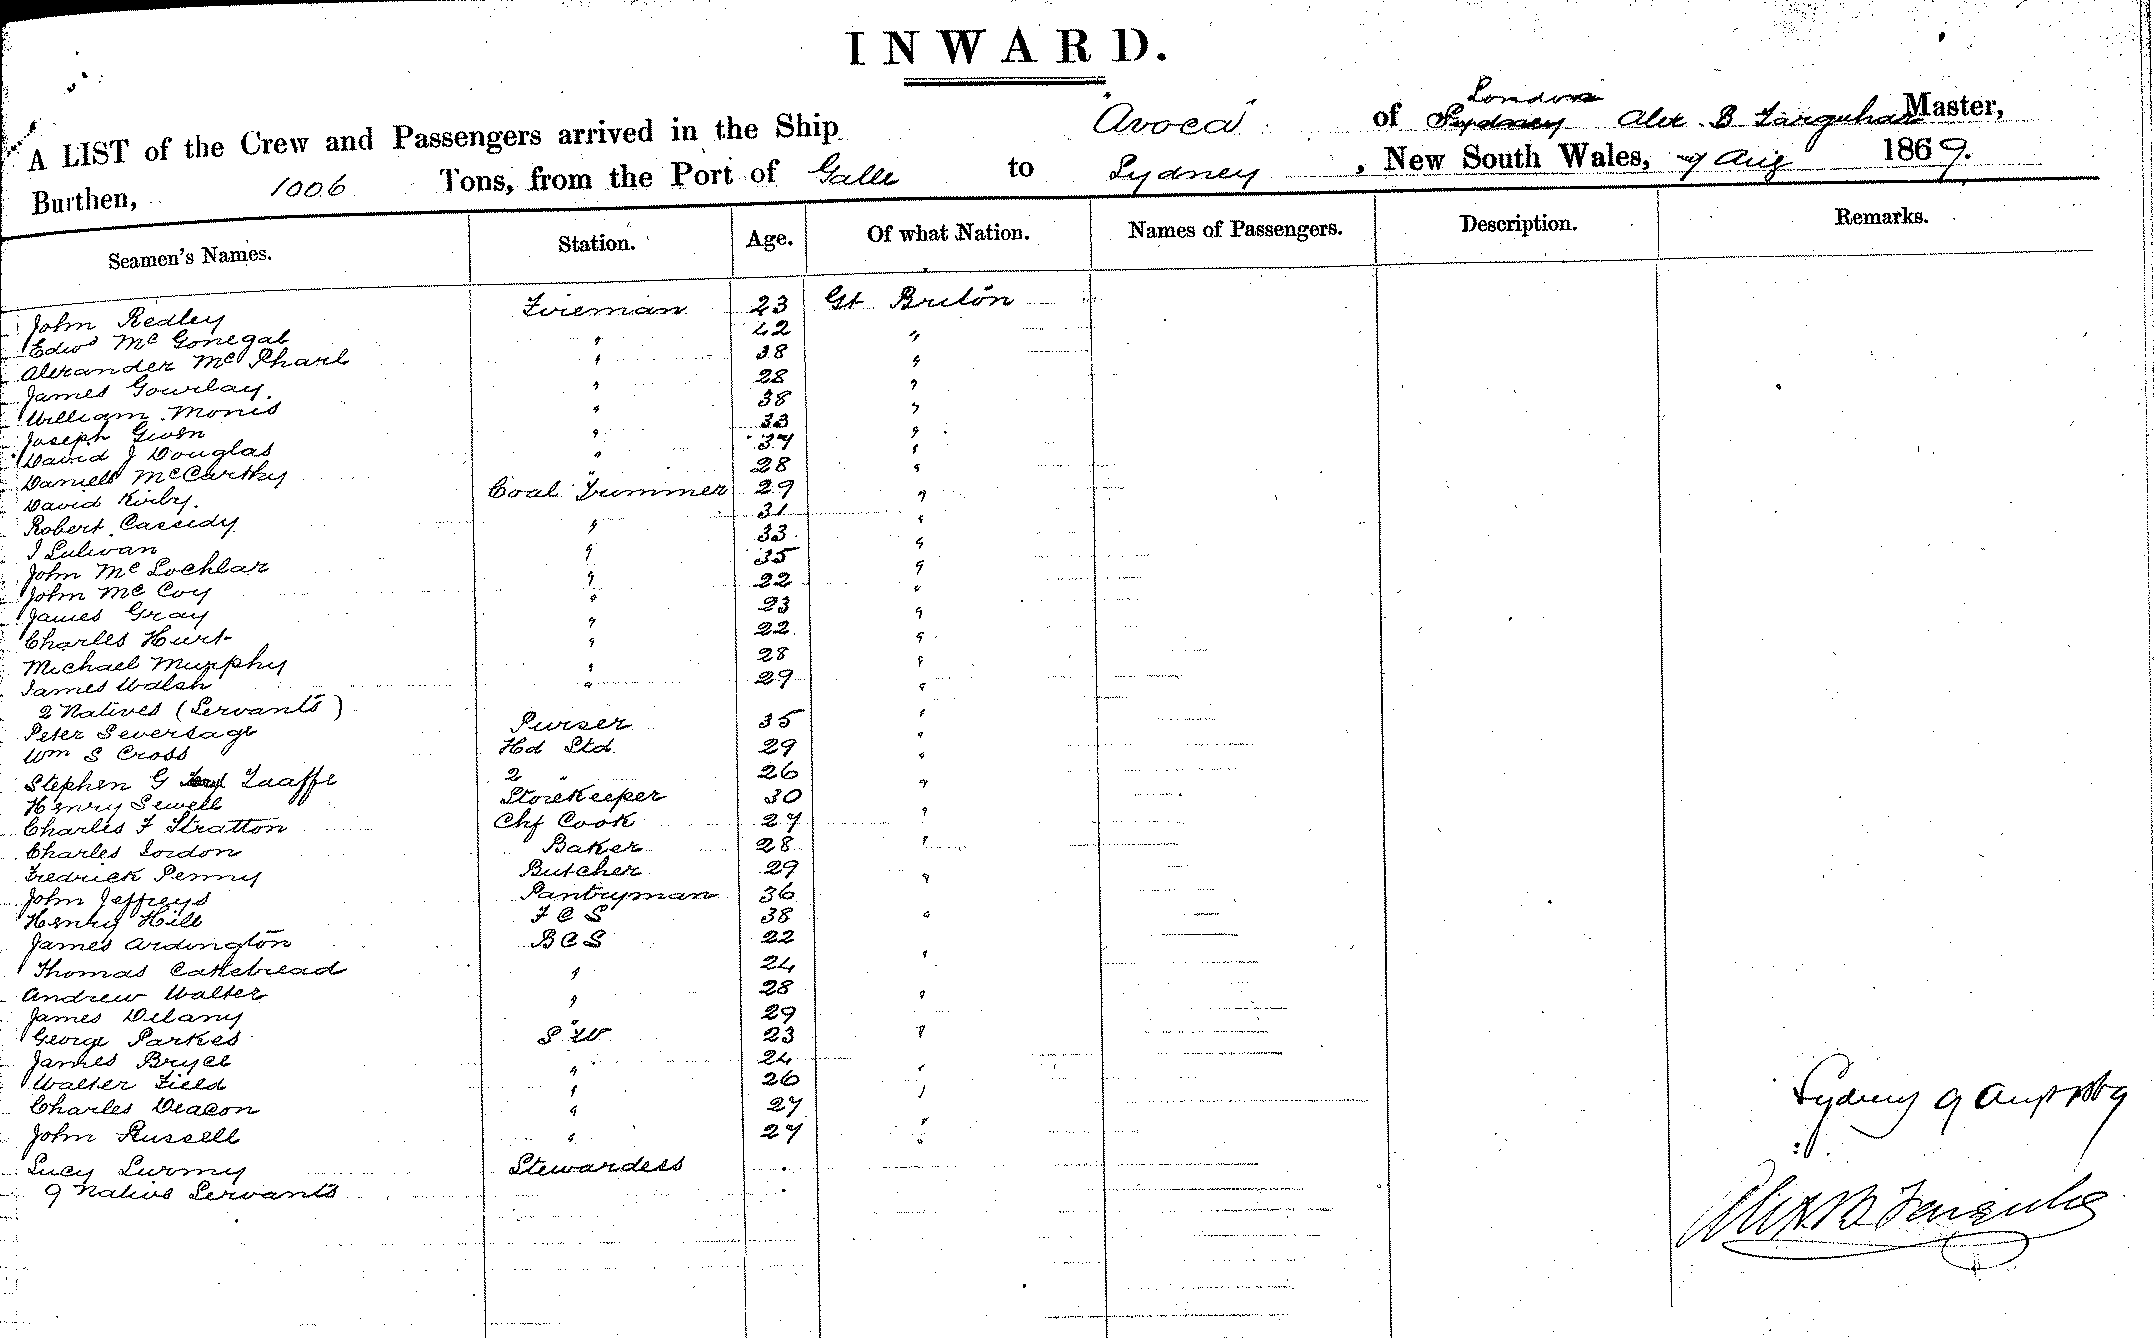 INWARD.
A LIST of the Crew and Passengers arrived in the Ship "Avoca" of London Sydney Alex B Farquhar Master,
Burthen, 1006 Tons, from the Port of Galle to Sydney, New South Wales, 9 Aug 1869.
Seamen's Names. Station. Age. Of what Nation. Names of Passengers. Description. Remarks.
John Redley Fireman 23 Gt Briton
Edwd McGonegal " 42 "
Alexander McPharl " 38 "
James Gourlay. " 28 "
William Monis " 38 "
Joseph Given " 33 "
David J Douglas " 37 "
Daniell McCarthy " 28 "
David Kirby. Coal Trimmer 29 "
Robert Cassidy " 31 "
J Sulivan " 33 "
John McLochlar " 35 "
John McCoy " 22 "
James Gray " 23 "
Charles Hurt " 22 "
Michael Murphy " 28 "
James Walsh " 29 "
2 Natives (Servants)
Peter Seversage Purser 35 "
Wm S Cross Hd Std 29 "
Stephen G Taaffe 2 " 26 "
Henry Sewell Storekeeper 30 "
Charles F Stratton Chf Cook 27 "
Charles Jordon Baker 28 "
Fredrick Penny Butcher 29 "
John Jeffreys Pantryman 36
Henry Hill F C S 38 "
James Ardington B C S 22
Thomas Cakebread " 24 "
Andrew Walter " 28 "
James Delany " 29
George Parkes S W 23 "
James Bryce " 24 "
Walter Field " 26 "
Charles Deacon " 27 "
John Russell " 27 "
Lucy Lurmy Stewardess
9 Native Servants
Sydney 9 Augt 1869
Alex B Farquhar